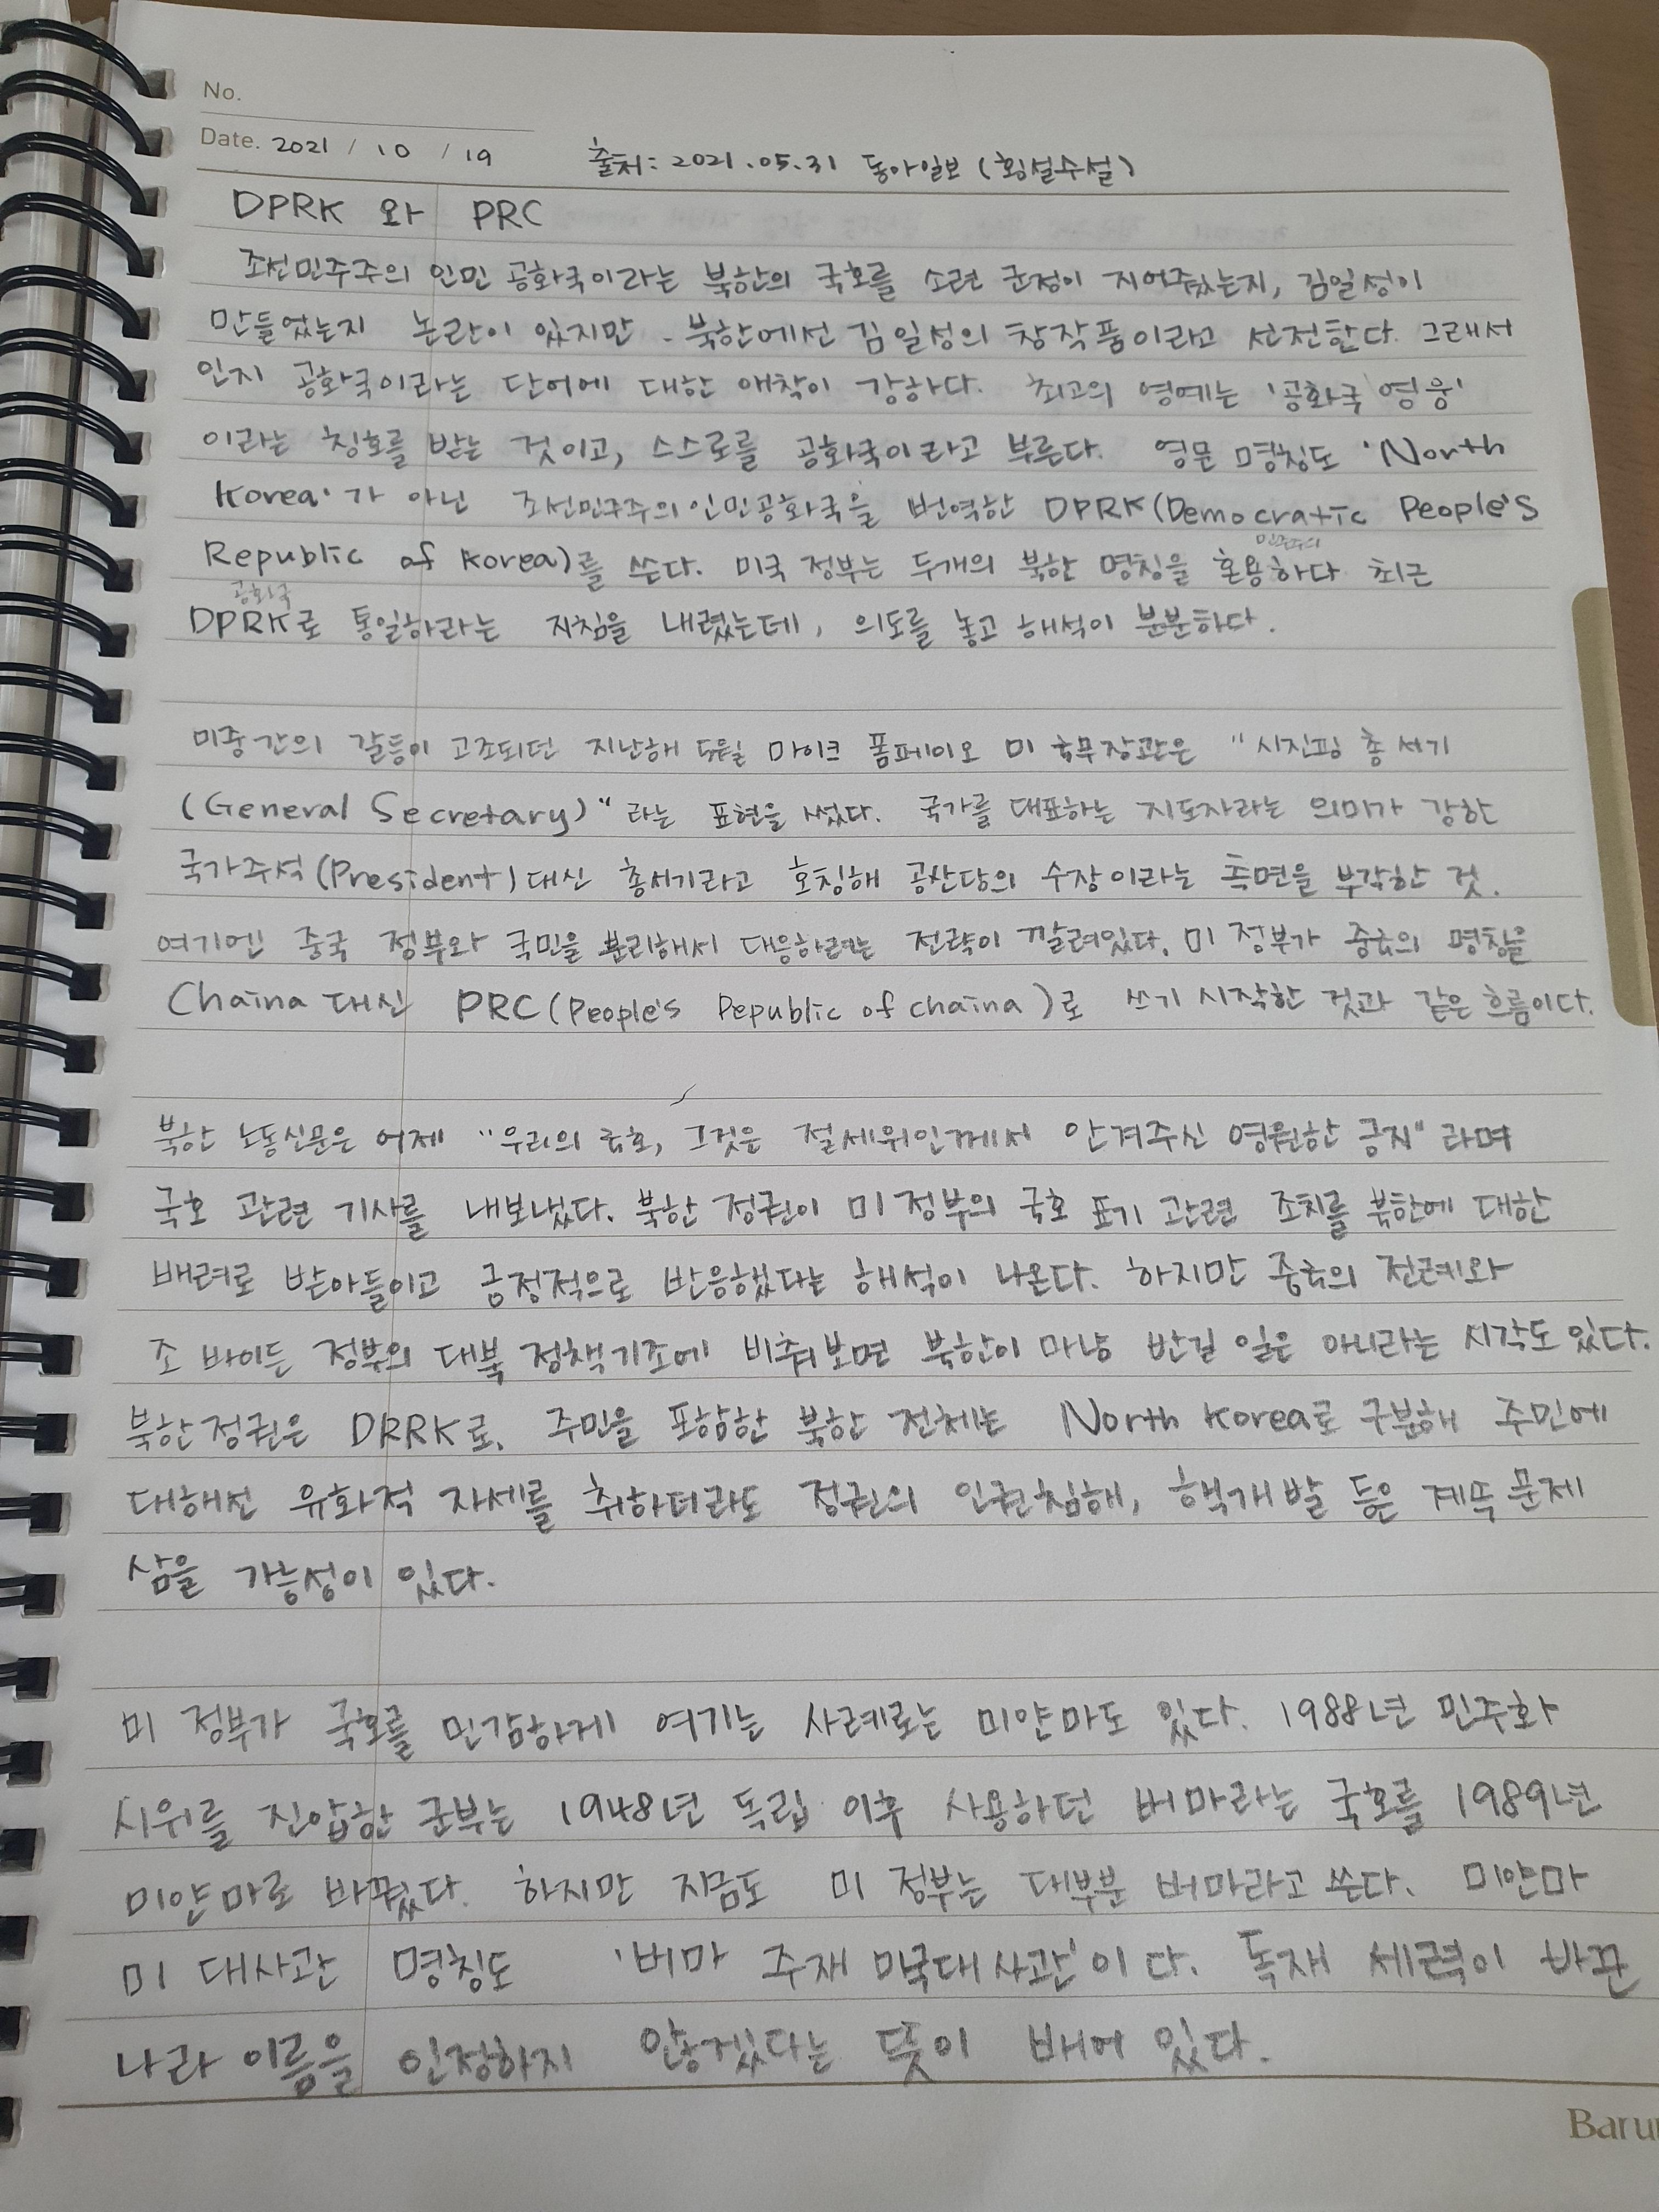 No.
Date. 2021 / 10 / 19 출처: 2021.05.31 동아일보 (횡설수설)
DPRK 와 PRC
조선민주주의 인민 공화국이라는 북한의 국호를 소련 군정이 지어줬는지, 김일성이
만들었는지 논란이 있지만 북한에선 김일성의 창작품이라고 선전한다. 그래서
인지 공화국이라는 단어에 대한 애착이 강하다. 최고의 영예는 '공화국 영웅'
이라는 칭호를 받는 것이고, 스스로를 공화국이라고 부른다. 영문 명칭도 'North
Korea'가 아닌 조선민주주의인민공화국을 번역한 DPRK(Democratic People's
민주주의
Republic of Korea)를 쓴다. 미국 정부는 두개의 북한 명칭을 혼용하다 최근
공화국
DPRK로 통일하라는 지침을 내렸는데, 의도를 놓고 해석이 분분하다.
미중간의 갈등이 고조되던 지난해 마이크 폼페이오 미 국무장관은 "시진핑 총서기
(General Secretary)"라는 표현을 썼다. 국가를 대표하는 지도자라는 의미가 강한
국가주석(President)대신 총서기라고 호칭해 공산당의 수장이라는 측면을 부각한 것.
여기엔 중국 정부와 국민을 분리해서 대응하려는 전략이 깔려있다. 미 정부가 중국의 명칭을
Chaina 대신 PRC(People's Pepublic of chaina)로 쓰기 시작한 것과 같은 흐름이다.
북한 노동신문은 어제 "우리의 국호, 그것은 절세위인께서 안겨주신 영원한 긍지"라며
국호 관련 기사를 내보냈다. 북한 정권이 미 정부의 국호 표기 관련 조치를 북한에 대한
배려로 받아들이고 긍정적으로 반응했다는 해석이 나온다. 하지만 중국의 전례와
조 바이든 정부의 대북 정책기조에 비춰보면 북한이 마냥 반길 일은 아니라는 시각도 있다.
북한정권은 DRRK로, 주민을 포함한 북한 전체는 North Korea로 구분해 주민에
대해선 유화적 자세를 취하더라도 정권의 인권침해, 핵개발 등은 계속 문제
삼을 가능성이 있다.
미 정부가 국호를 민감하게 여기는 사례로는 미얀마도 있다. 1988년 민주화
시위를 진압한 군부는 1948년 독립 이후 사용하던 버마라는 국호를 1989년
미얀마로 바꿨다. 하지만 지금도 미 정부는 대부분 버마라고 쓴다. 미얀마
미 대사관 명칭도 '버마 주재 미국대사관'이다. 독재 세력이 바꾼
나라 이름을 인정하지 않겠다는 뜻이 배어 있다.